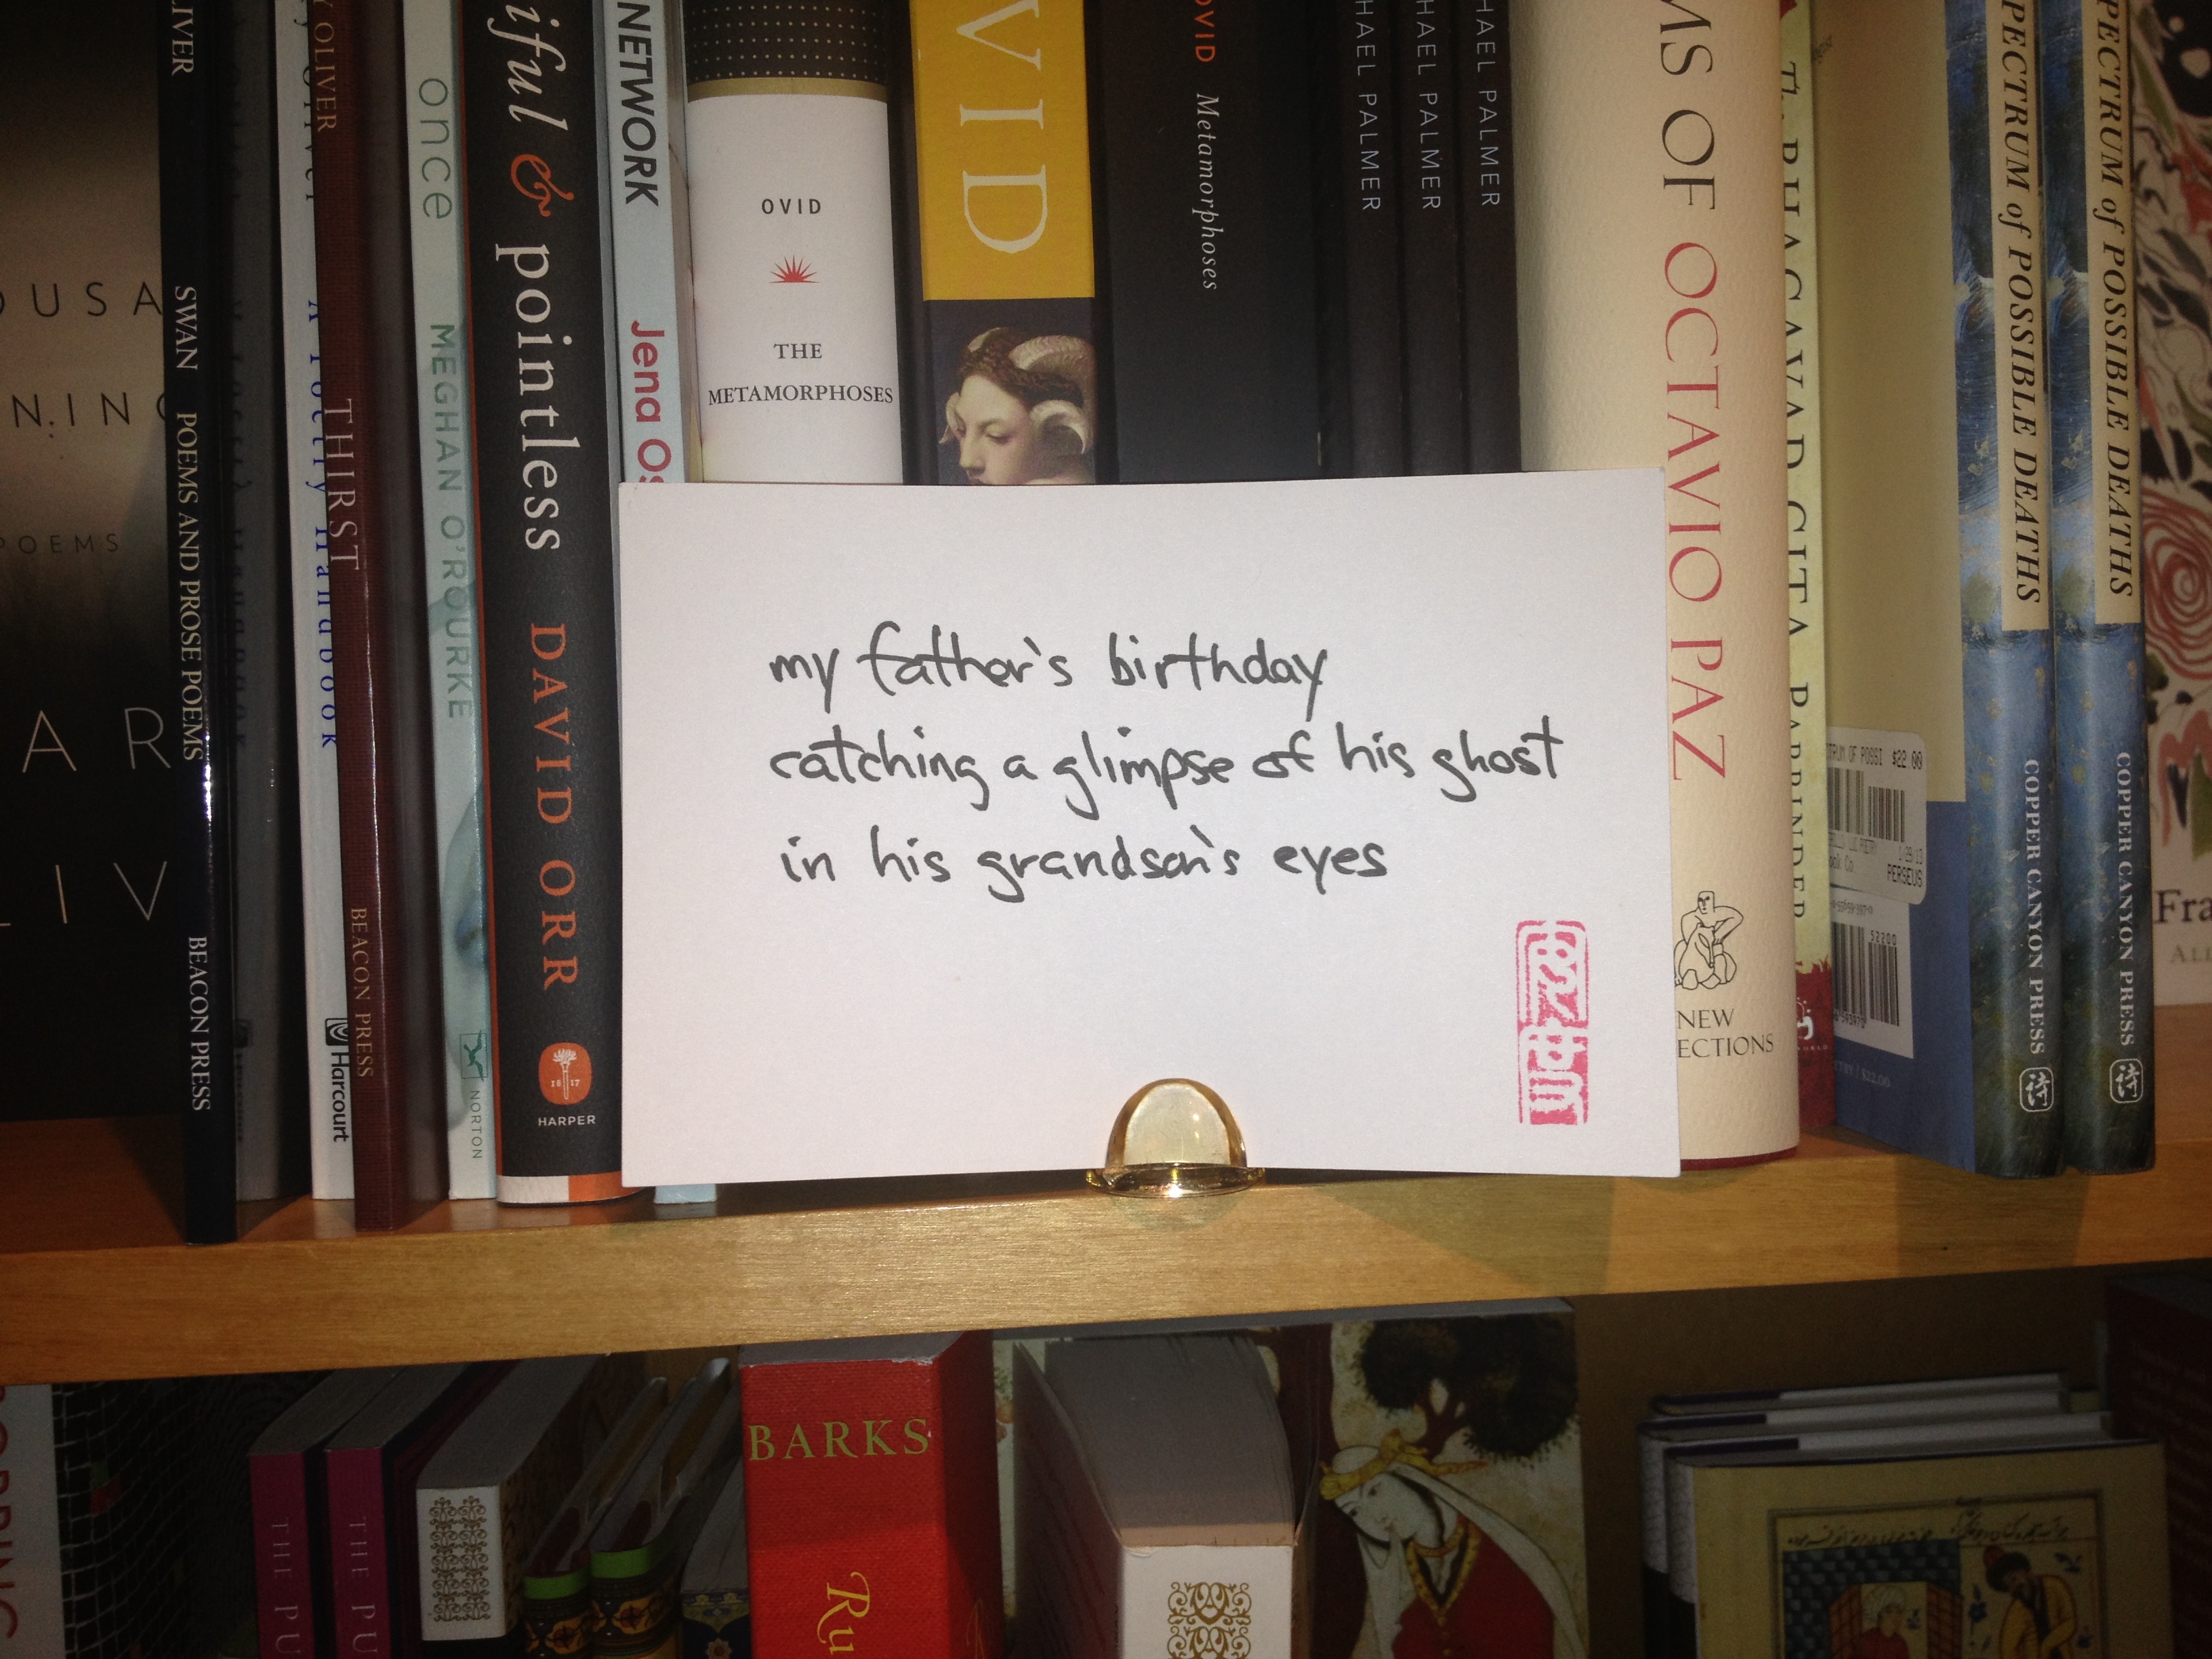 LIVER
SWAN
POEMS AND PROSE POEMS
BEACON PRESS
POEMS
A Poetry Handbook
Harcourt
OLIVER
THIRST
BEACON PRESS
once
MEGHAN O'ROURKE
NORTON
iful & pointless
DAVID ORR
18 17
HARPER
NETWORK
Jena Os
OVID
THE
METAMORPHOSES
VID
OVID
Metamorphoses
HAEL PALMER
HAEL PALMER
HAEL PALMER
MS OF OCTAVIO PAZ
NEW
ECTIONS
The BHAGAVAD GITA
PARRINDER
TRUM OF POSSI $22.00
PERSEUS
52200
PECTRUM of POSSIBLE DEATHS
COPPER CANYON PRESS
詩
PECTRUM of POSSIBLE DEATHS
COPPER CANYON PRESS
詩
Fra
my father's birthday
catching a glimpse of his ghost
in his grandson's eyes
THE PU
THE PU
BARKS
Ru